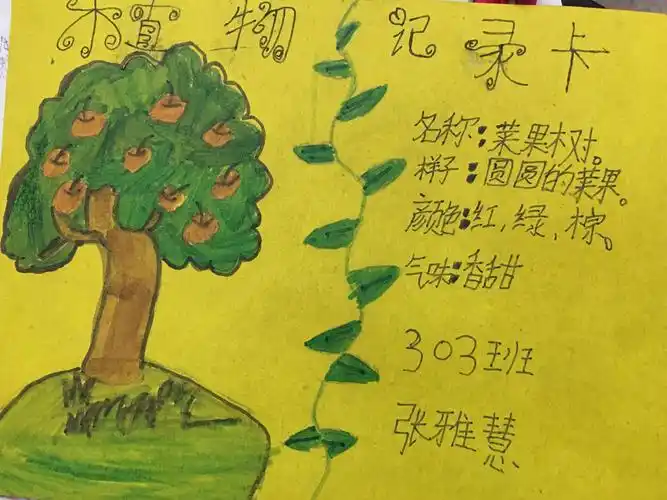 植物记录卡
名称:苹果树。
样子:圆圆的苹果。
颜色:红,绿,棕。
气味:香甜
303班
张雅慧